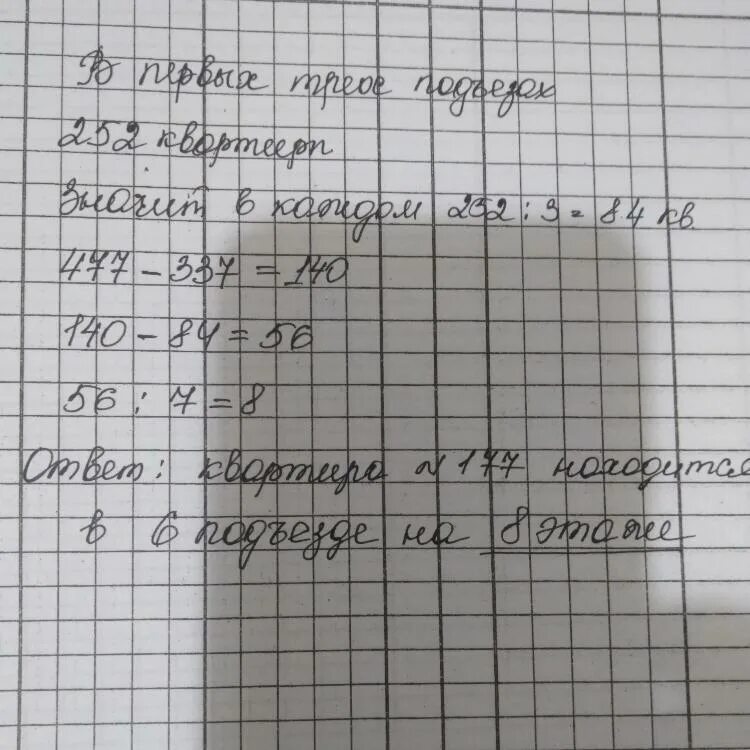 В первых трёх подъездах
252 квартиры
Значит в каждом 252 : 3 = 84 кв
477 - 337 = 140
140 - 84 = 56
56 : 7 = 8
Ответ: квартира № 177 находится
в 6 подъезде на 8 этаже